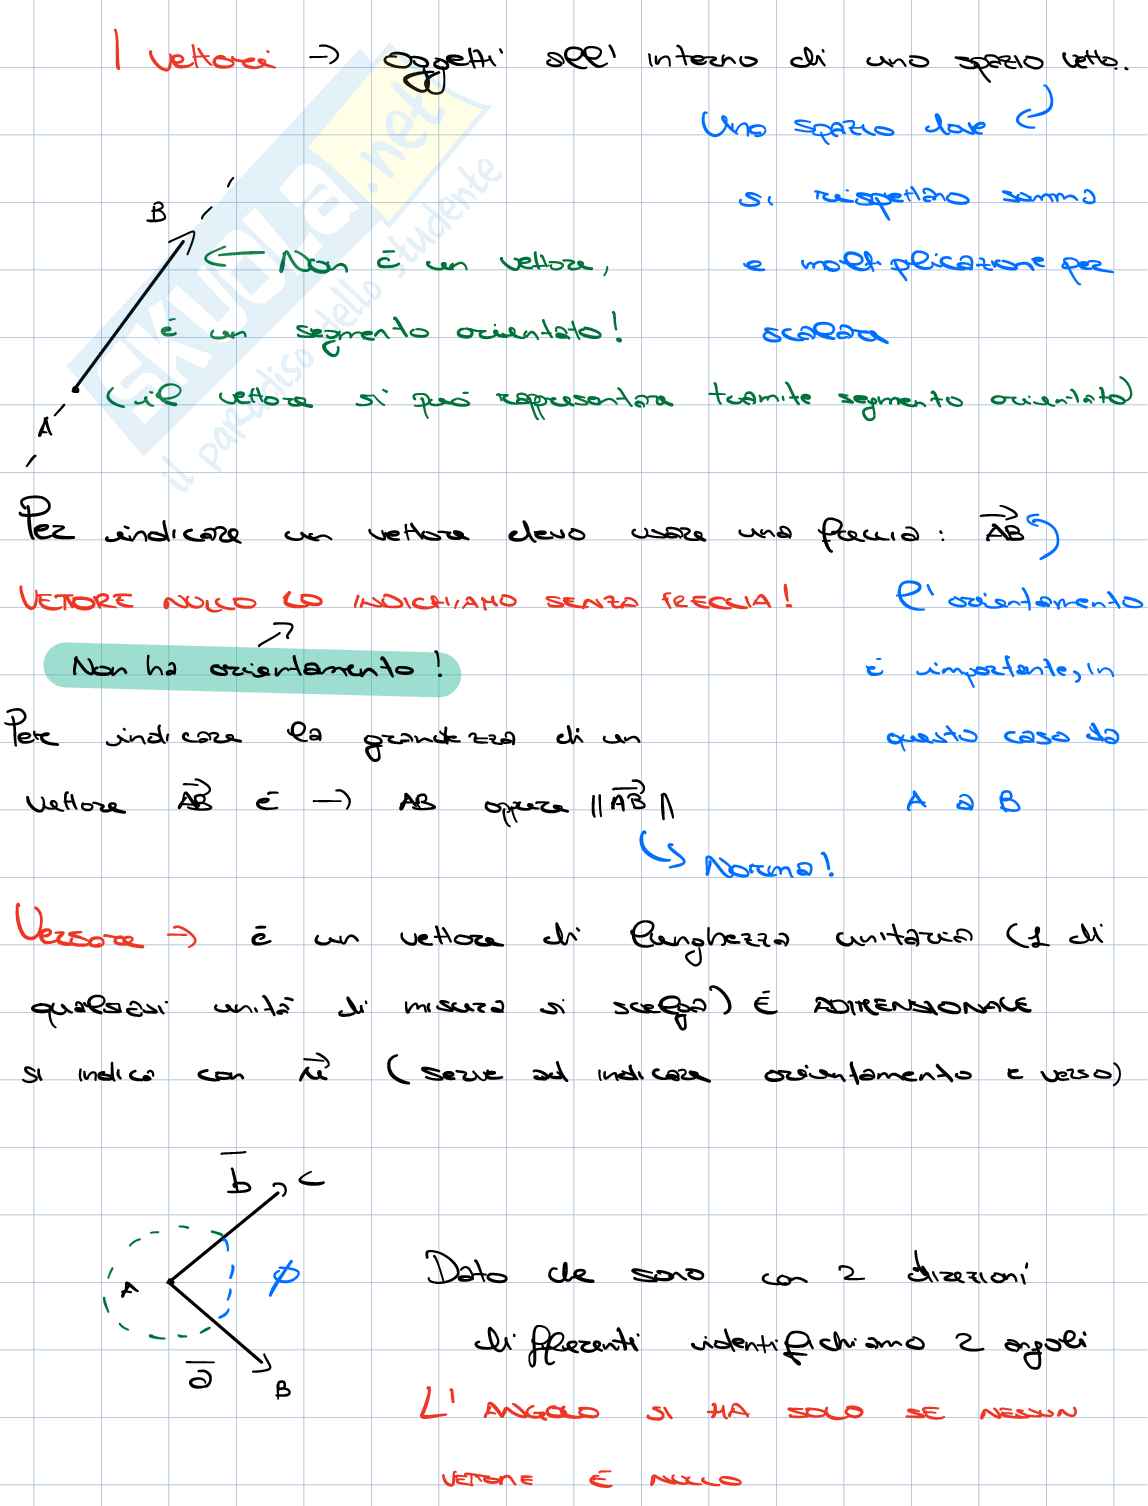 I vettori → oggetti all'interno di uno spazio vetto.
Uno spazio dove
si rispettano somma
e moltiplicazione per
scalare
B
← Non è un vettore,
è un segmento orientato!
(il vettore si può rappresentare tramite segmento orientato)
A
SKUOLA.net
il paradiso dello studente
Per indicare un vettore devo usare una freccia: AB
VETTORE NULLO LO INDICHIAMO SENZA FRECCIA!
l'orientamento
Non ha orientamento!
è importante, in
Per indicare la grandezza di un
questo caso da
vettore AB è → AB oppure ||AB||
A a B
Norma!
Versore → è un vettore di lunghezza unitaria (1 di
qualsiasi unità di misura si scelga) È ADIMENSIONALE
si indica con u (serve ad indicare orientamento e verso)
b C
A ϕ
a B
Dato che sono con 2 direzioni
differenti identifichiamo 2 angoli
L'ANGOLO SI HA SOLO SE NESSUN
VETTORE È NULLO